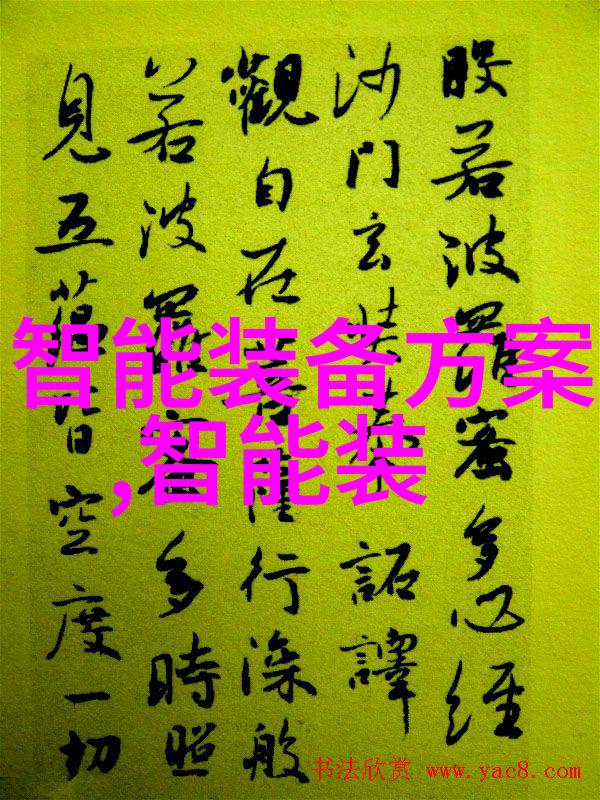 般若波羅蜜多心經
沙門玄奘奉 詔譯
觀自在菩薩行深般
若波羅蜜多時照
見五蘊皆空度一切
智能装备方案
,智能装
书法欣赏 www.yac8.com